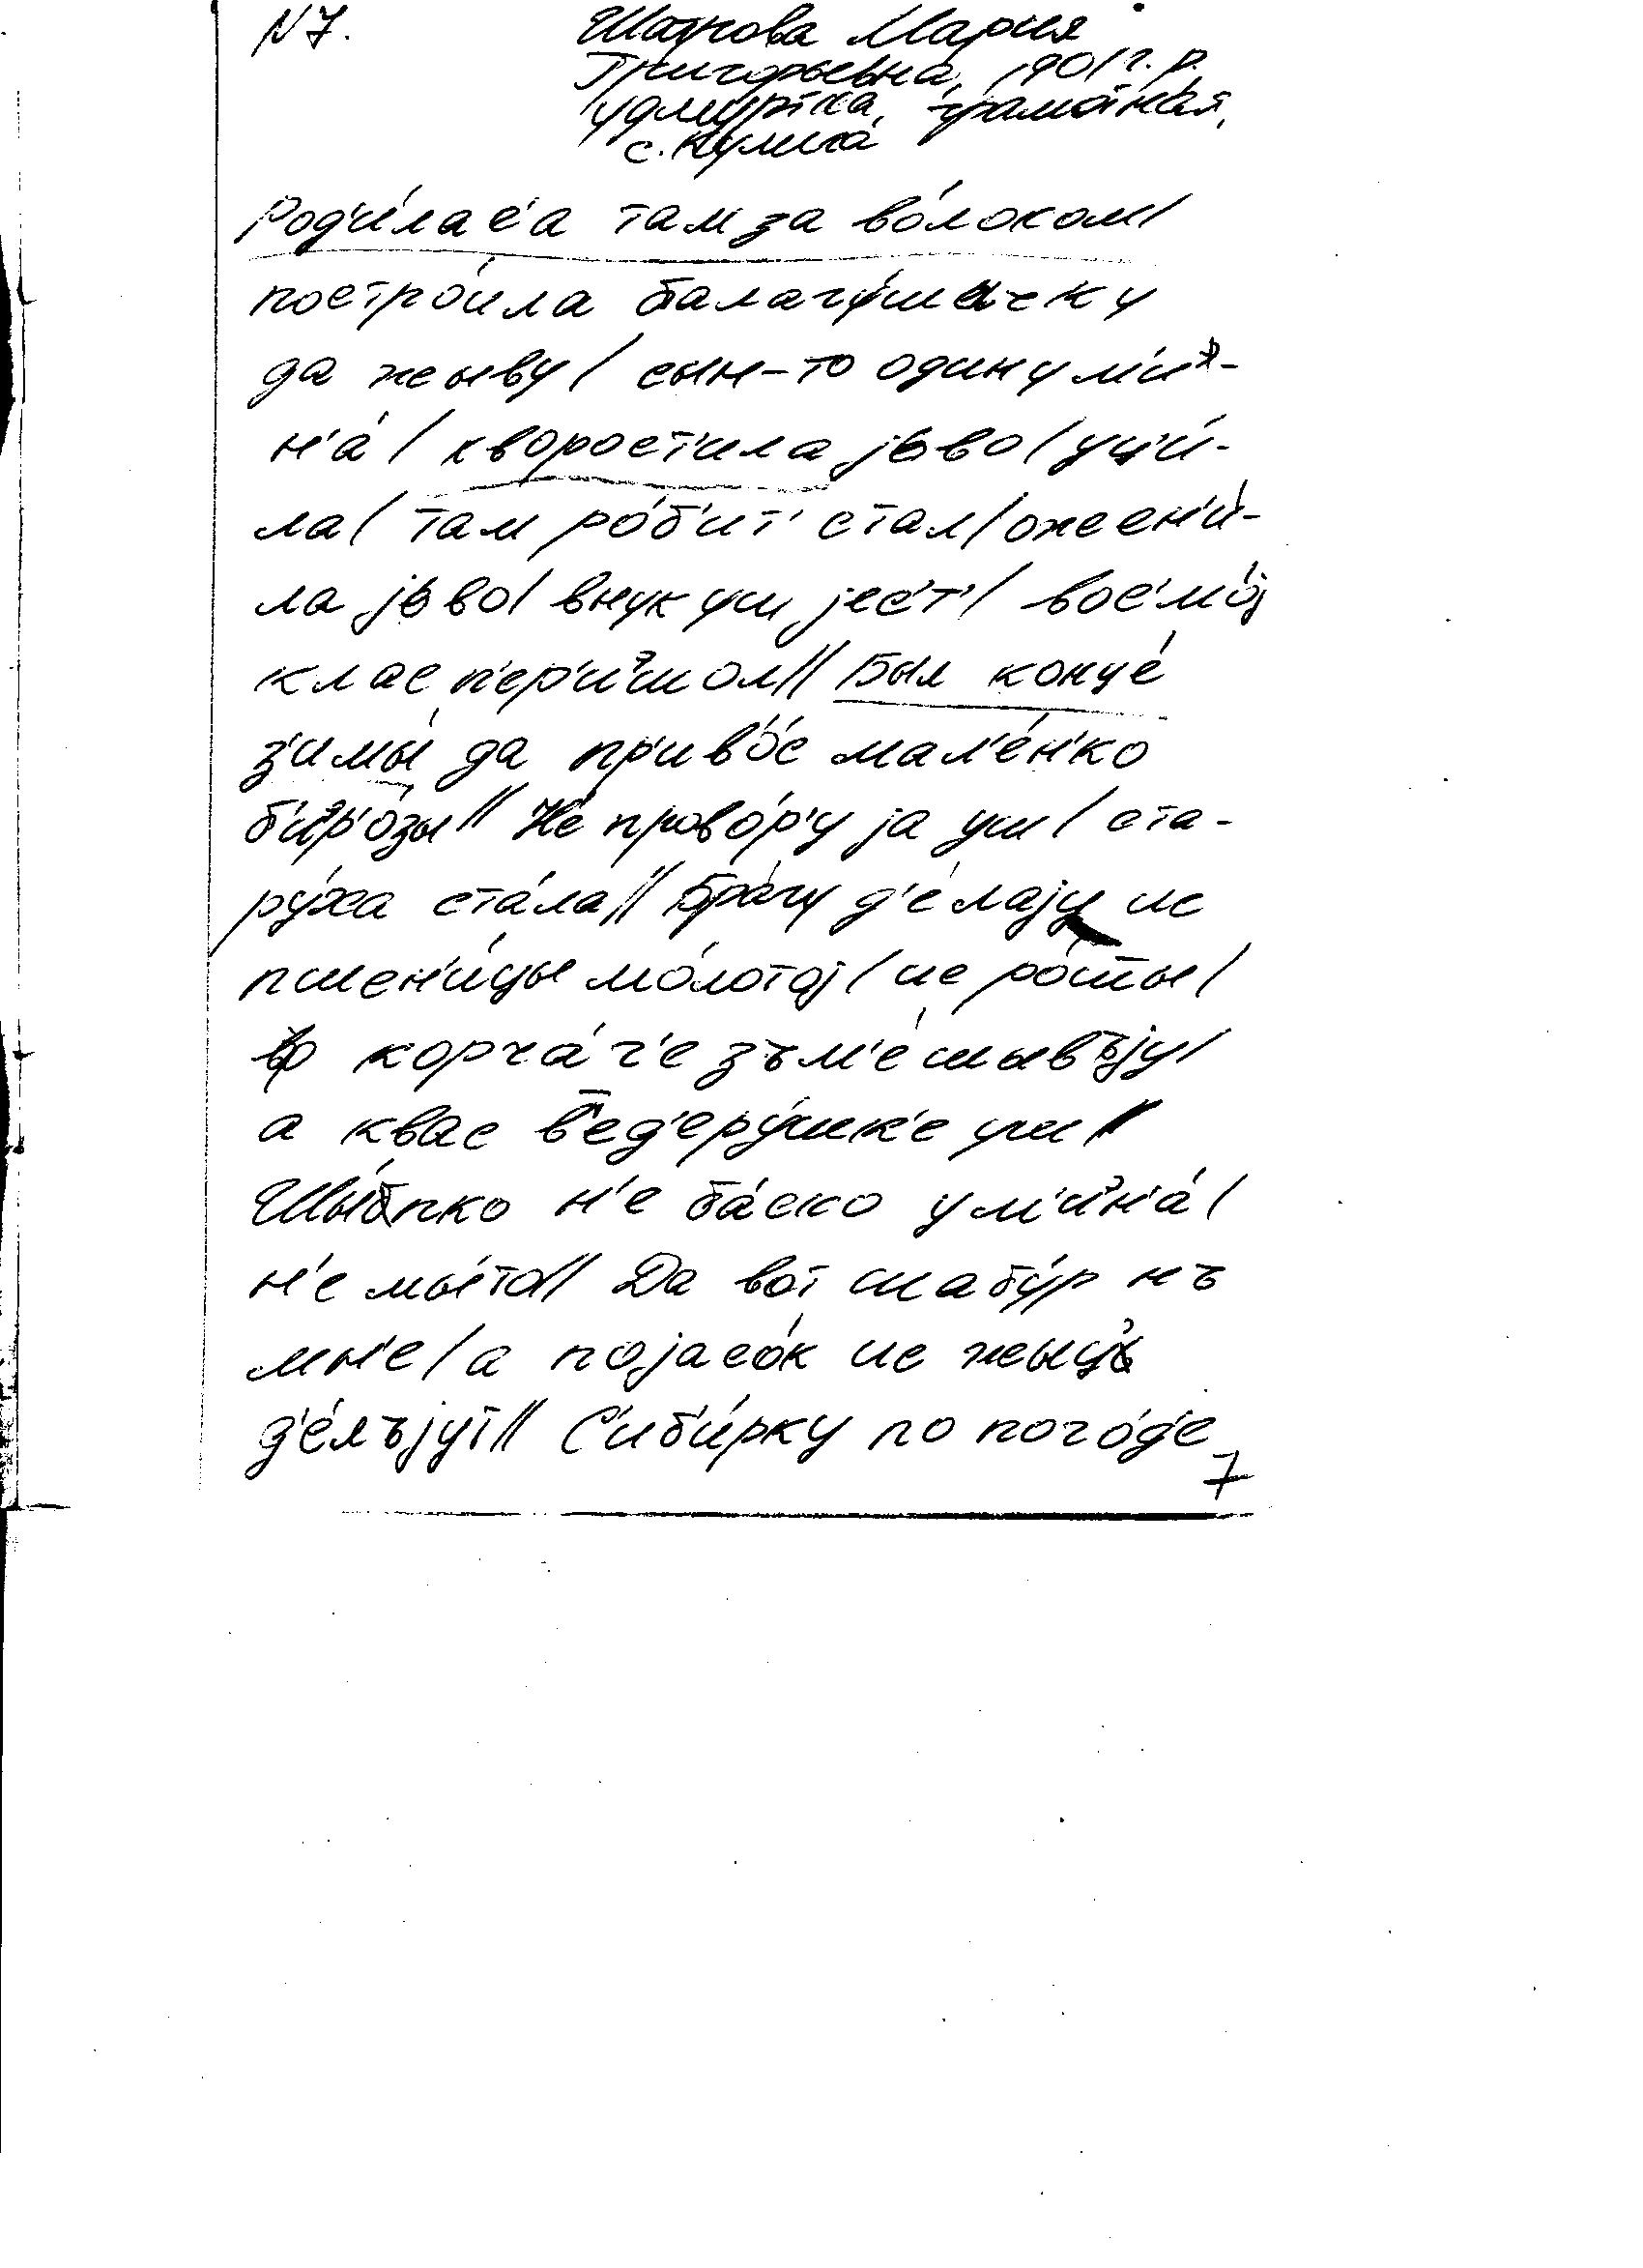 N 7. Шатрова Мария
Григорьевна, 1901 г. р.
удмуртка, грамотная,
с. Кулига
Род'и́лас'а там за во́локом/
постро́ила балагу́шычку
да жыву/ сын-то один у м'иэ-
н'а́/ хворост'ила jово/ уц'и́-
ла/ там ро́б'ит' стал/ ожен'и́-
ла jово/ внук уш jес'т'/ вос'мо́j
клас п'ер'иэшол// Был конце́
з'имы́ да пр'ив'о́с мал'е́н'ко
б'иэр'о́зы// Н'е прово́р'у jа уш/ ста-
ру́ха ста́ла// Бра́гу д'е́лаjу ис
пшен'и́цы мо́лотоj/ ис ро́шшы/
в корча́г'е зъм'е́шывъjу/
а квас в'ед'еру́шк'е уш//
Шы́пко н'е ба́ско у м'иэн'а́/
н'е мы́то// Да вот шабу́р нъ
мн'е/ а поjасо́к ис жы́ц'
д'е́лъjут// С'иб'и́рку по пого́д'е
7